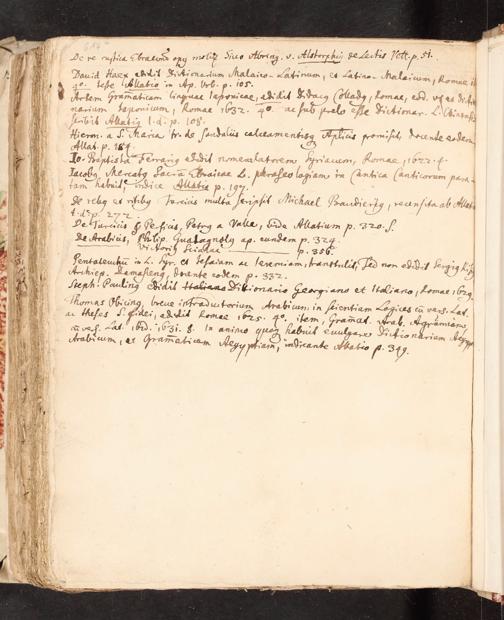 De re rustica Ebraeorum opus molitus v. Alstorphius de Lectis Vett. p. 51.
David Haex edidit Dictionarium Malaico-Latinum, et Latino-Malaicum, Romae
4o. teste Allatio in Ap. Urb. p. 105.
Artem Gramaticam linguae Japonicae, edidit Didacus Collado, Romae, eod. et dictio
narium Japonicum, Romae 1632. 4o. ac sub prelo esse dictionar. L. Chinensis
scribit Allatius l. d. p. 108.
Hieron. a S. Maria tr. de sandaliis calceamentisq Aplicis promisit, docente eodem
Allat. p. 184.
Jo. Baptista Ferrarius edidit nomenclatorem Syriacum, Romae, 1622. 4.
Jacobus Mercatus Sacrae Ebraicae L. phraseologiam in Cantica Canticorum para-
tam habuit, indice Allatio p. 197.
De rebus et ritibus Turcicis multa scripsit Michael Baudierius, recensita ab Allatio
l. d. p. 272.
De Turcicis & Persicis, Petrus a Valle, vide Allatium p. 320. s.
De Arabicis, Philip. Guadagnolus ap. eundem p. 324.
Victorius Scialac p. 356.
Pentateuchum in L. Syr. et Jesaiam ac Jeremiam, transtulit, sed non edidit Sergius
Archiep. Damascenus, docente eodem p. 332.
Steph. Paulinus edidit Dictionario Georgiano et Italiano, Romae 1629.
Thomas Obicinus, breve introductorium Arabicum in scientiam Logices cum vers. Lat.
ac theses S. fidei, edidit Romae 1625. 4o. item, Gramat. Arab. Agrumiam,
cum vers. Lat. ibid. 1631. 8. In animo quoq habuit evulgare Dictionarium
Arabicum, et Gramaticam Aegyptiam, indicante Allatio p. 349.